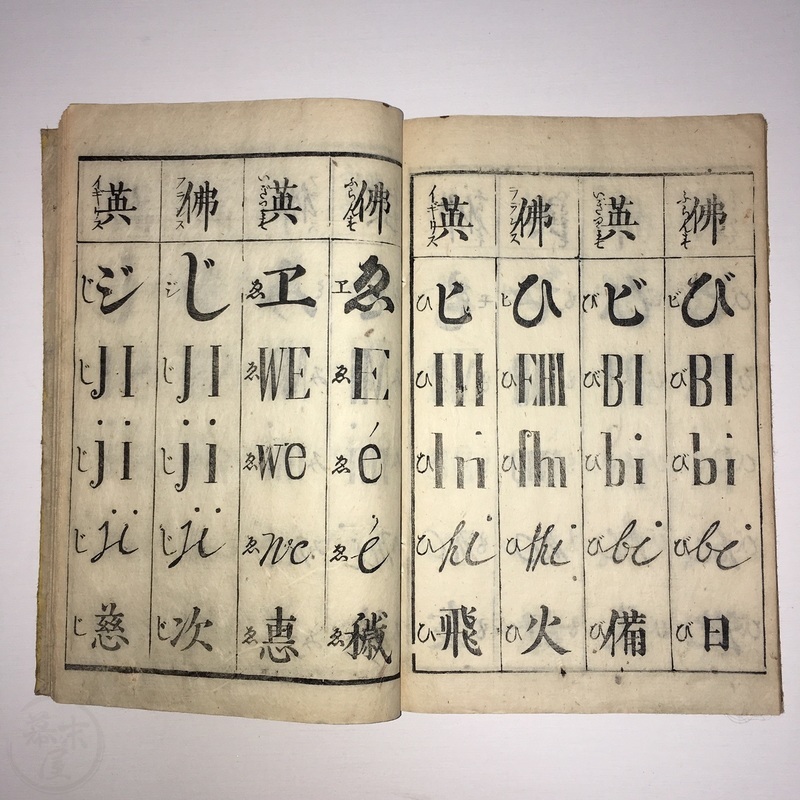 佛 ふらんす び ビ BI び bi び bi び 日 び
英 いぎりす ビ び BI び bi び bi び 備 び
佛 フランス ひ ヒ FHI ひ fhi ひ fhi ひ 火 ひ
英 イギリス ヒ ひ HI ひ hi ひ hi ひ 飛 ひ
佛 ふらんす ゑ ヱ E ゑ é ゑ é ゑ 穢 ゑ
英 いぎりす ヱ ゑ WE ゑ we ゑ we ゑ 惠 ゑ
佛 フランス じ ジ JI じ ji じ ji じ 次 じ
英 イギリス ジ じ JI じ ji じ ji じ 慈 じ